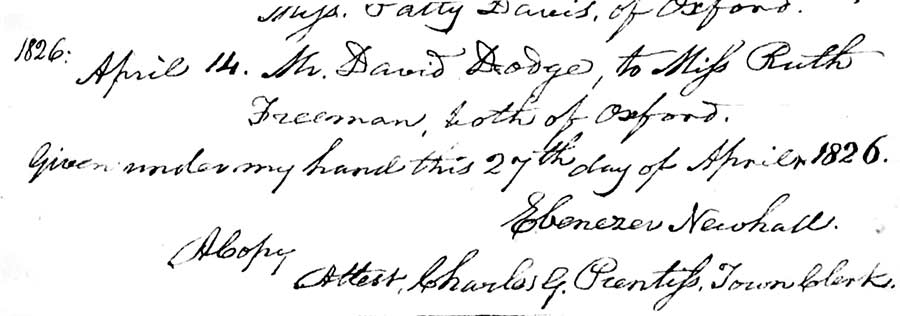 Miss. Patty Davis, of Oxford.
1826. April 14. Mr. David Dodge, to Miss Ruth
Freeman, both of Oxford.
Given under my hand this 27th day of April, 1826.
Ebenezer Newhall.
A Copy
Attest, Charles G. Prentiss, Town Clerk.